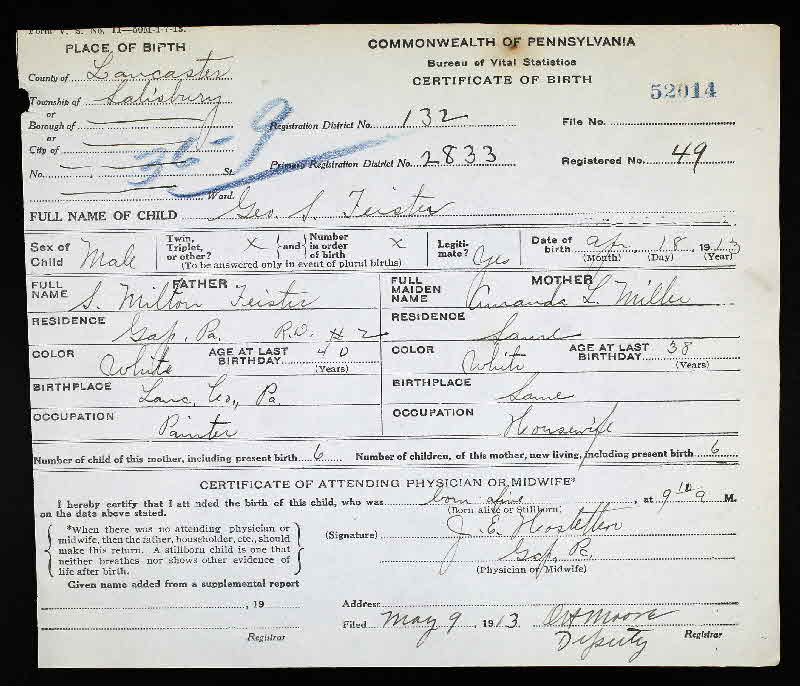 Form V. S. No. 11—50M-1-7-13.
PLACE OF BIRTH
COMMONWEALTH OF PENNSYLVANIA
Bureau of Vital Statistics
CERTIFICATE OF BIRTH
52014
County of Lancaster
Township of Salisbury
or
Borough of
or
City of
No. , St.
Ward.
36-9
Registration District No. 132
File No.
Primary Registration District No. 2833
Registered No. 49
FULL NAME OF CHILD Geo. S. Feister
Sex of Child Male
Twin, Triplet, or other? x and Number in order of birth x
(To be answered only in event of plural births)
Legitimate? Yes
Date of birth Apr 18, 1913
(Month) (Day) (Year)
FATHER
FULL NAME S. Milton Feister
MOTHER
FULL MAIDEN NAME Amanda L. Miller
RESIDENCE Gap, Pa. R.D. #2
RESIDENCE Same
COLOR White AGE AT LAST BIRTHDAY 40 (Years)
COLOR White AGE AT LAST BIRTHDAY 38 (Years)
BIRTHPLACE Lanc. Co., Pa.
BIRTHPLACE Same
OCCUPATION Painter
OCCUPATION Housewife
Number of child of this mother, including present birth 6
Number of children, of this mother, now living, including present birth 6
CERTIFICATE OF ATTENDING PHYSICIAN OR MIDWIFE*
I hereby certify that I att nded the birth of this child, who was born alive, at 9 10 M.
on the date above stated. (Born alive or Stillborn)
*When there was no attending physician or
midwife, then the father, householder, etc., should
make this return. A stillborn child is one that
neither breathes nor shows other evidence of
life after birth.
(Signature) J. E. Hostetter
Gap, Pa.
(Physician or Midwife)
Given name added from a supplemental report
, 19
Registrar
Address
Filed May 9, 1913 Moore
Deputy Registrar